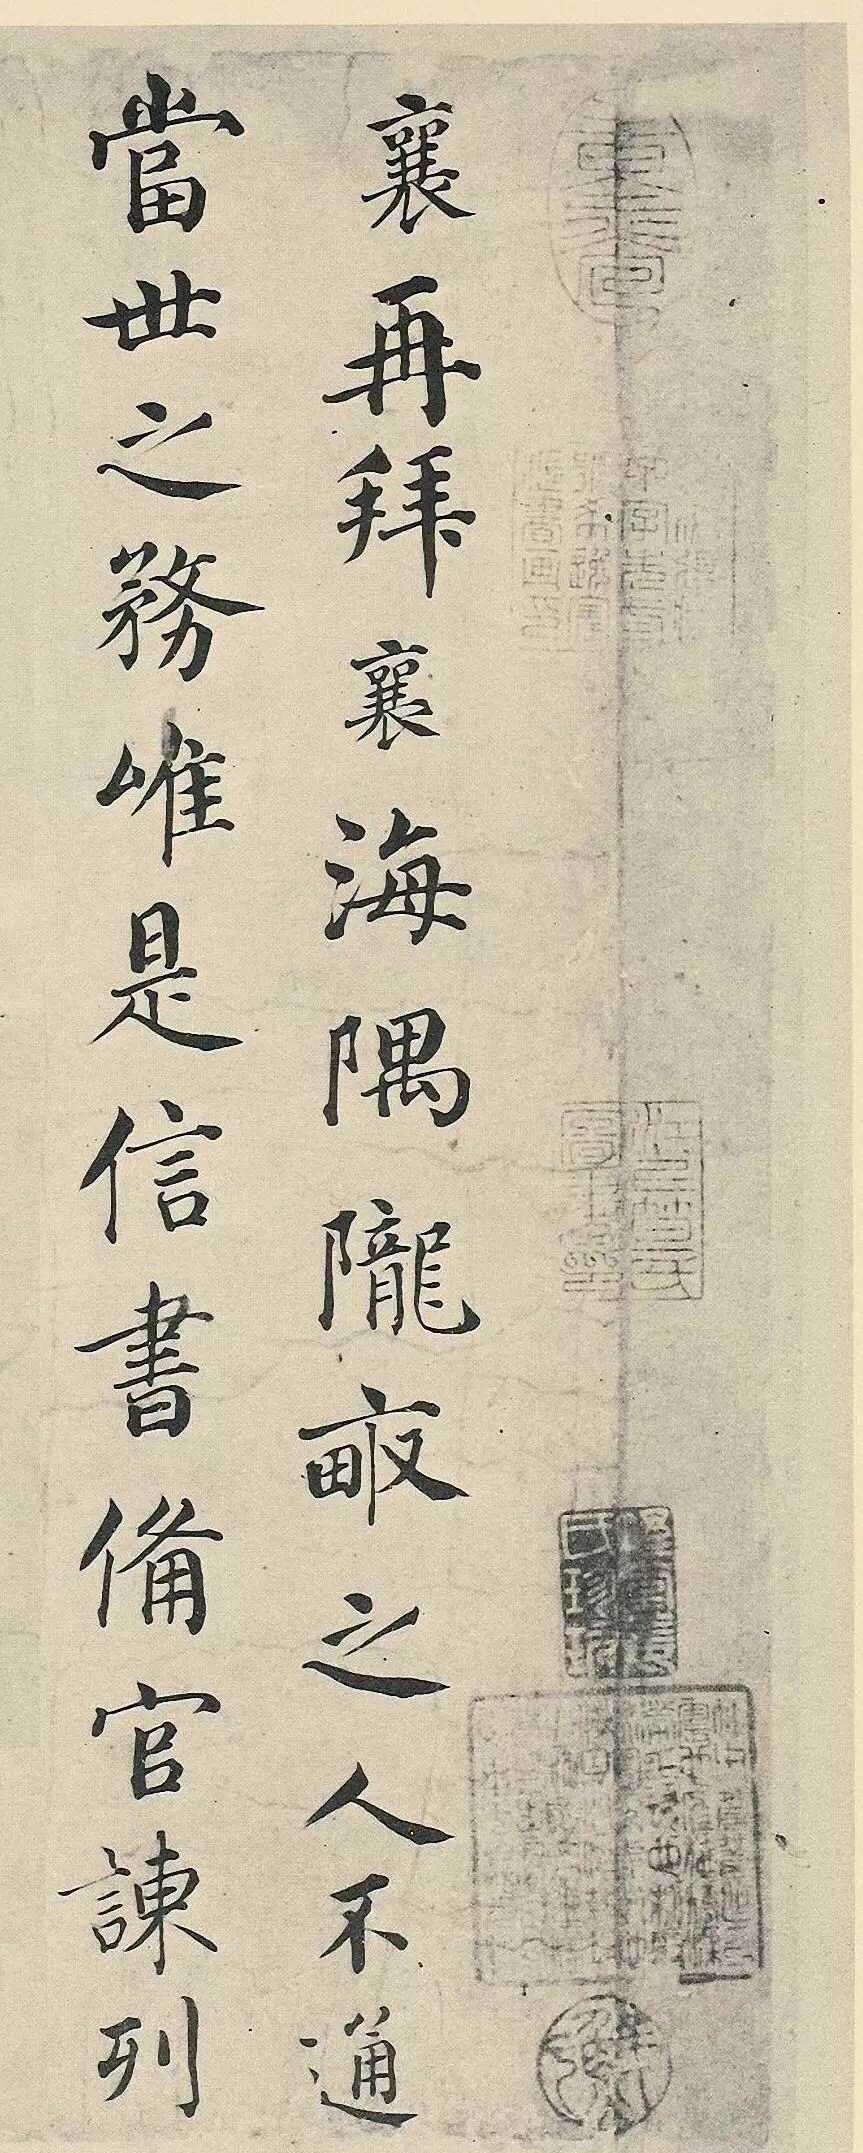 襄再拜襄海隅隴畝之人不通
當世之務唯是信書備官諫列